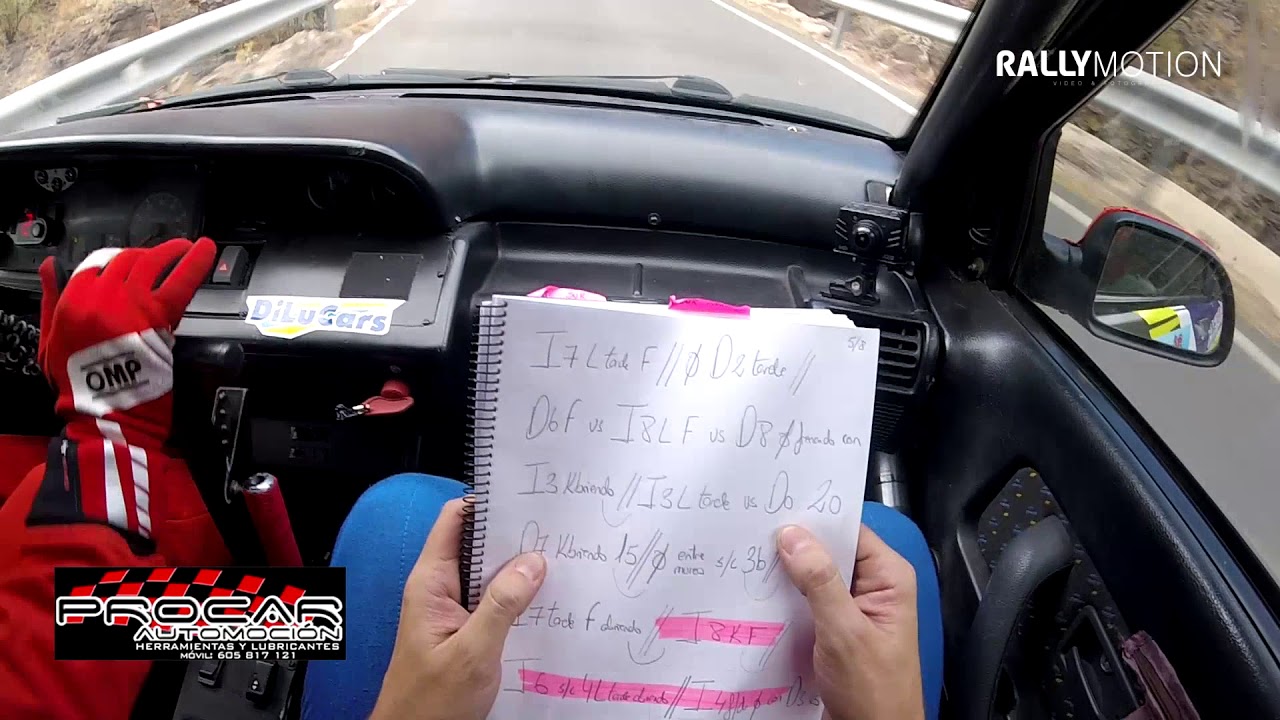 RALLYMOTION
OMP
DiLuCars
5/8
I7 L tarde F // ϕ D2 tarde //
D6F vs I8LF vs D8 ϕ frenado con
I3 Kbriendo // I3 L tarde vs Do 20
D7 Kbriendo 15 // ϕ entre muros s/c 3b //
I7 tarde F // I8KF //
I6 s/c 4L tarde // I4
PROCAR
AUTOMOCIÓN
HERRAMIENTAS Y LUBRICANTES
MÓVIL: 605 817 121